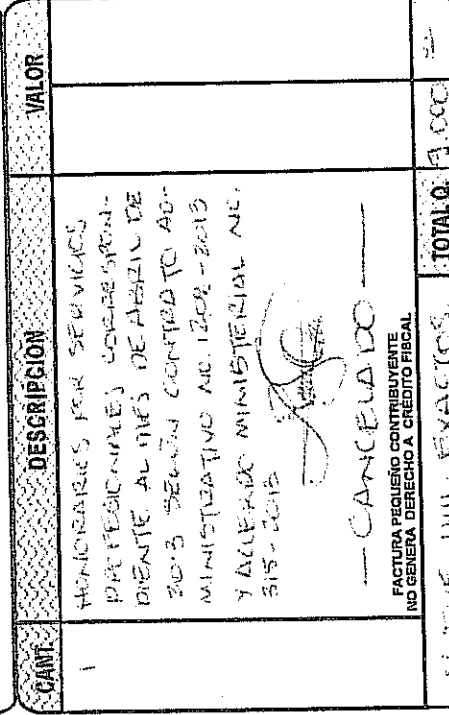 CANT. DESCRIPCIÓN VALOR
1 HONORARIOS POR SERVICIOS
PROFESIONALES CORRESPON-
DIENTE AL MES DE ABRIL DE
2013 SEGÚN CONTRATO AD-
MINISTRATIVO NO. 1202-2013
Y ACUERDO MINISTERIAL NO.
315-2013
— CANCELADO —
FACTURA PEQUEÑO CONTRIBUYENTE
NO GENERA DERECHO A CRÉDITO FISCAL
MIL EXACTOS TOTAL Q. 9,000